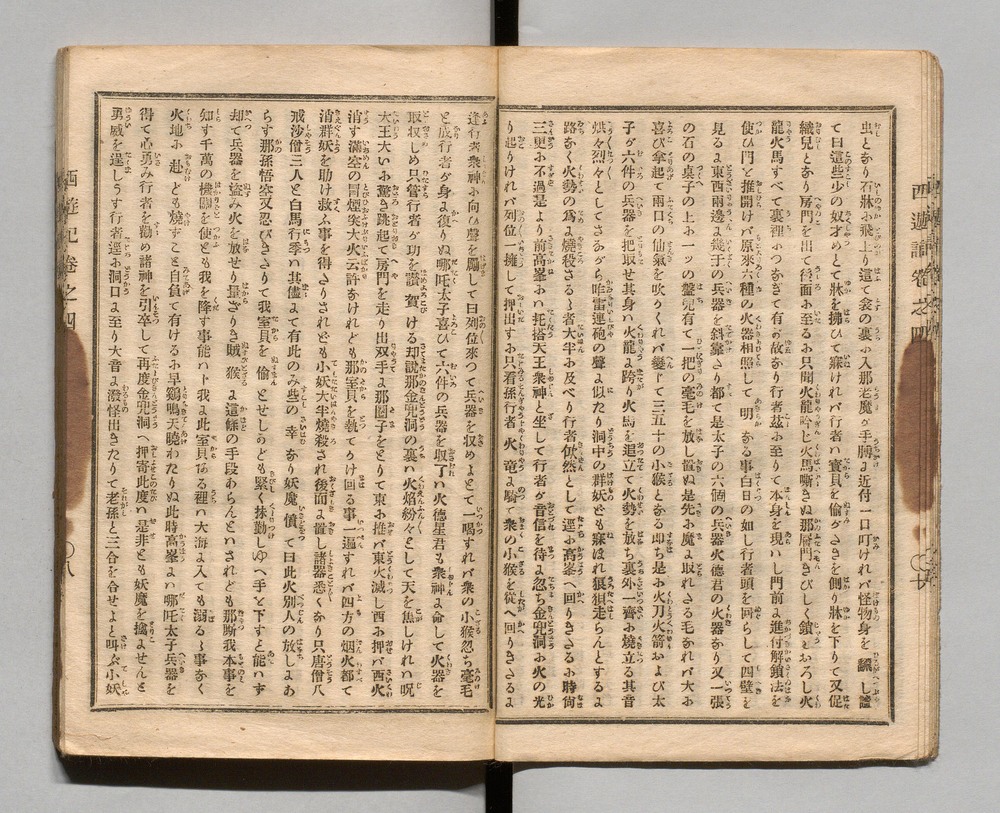 虫となり石牀に飛上り這て衾の裏に入那老魔が手膊に近付一口叮ければ怪物身を翻し
て曰這些少の奴才めとて牀を拂ひて寐ければ行者い寳貝を偸がさきを側り牀を下りて又促
織兒となり房門を出て後面に至るに只聞火龍吟じ火馬嘶きぬ那層門きびしく鎖をおろし火
龍火馬すべて裏裡につなぎて有る故なり行者茲に至りて本身を現ハし門前に進付解鎖法を
使ひ門を推開けバ原來六種の火器相照して明なる事白日の如し行者頭を回らして四壁を
見るに東西兩邊に幾千の兵器を斜靠さり都て是太子の六個の兵器火德君の火器なり又一張
の石の桌子の上に一ッの盤兒有て一把の毫毛を放し置ぬ是先に魔に取れさる毛なれバ大に
喜び拿起て兩口の仙氣を吹りくれバ變じて三五十の小猴となる即ち是に火刀火箭および太
子が六件の兵器を把取せ其身ハ火龍に跨り火馬を追立て火勢を放ち裏外一齊に燒立る其音
烘々烈々としてさながら咋雷連砲の聲に似たり洞中の群妖ども寐ほれ狼狽走らんとするに
路なく火勢の為に燒殺さるゝ者大半に及べり行者欣然として逕に高峯へ回りきさるに時尙
三更に不過是より前高峯にハ托搭天王衆神と坐して行者が音信を待に忽ち金兜洞に火の光
り起りければ列位一擁して押出すに只看孫行者火竜に騎て衆の小猴を從へ回りきさるに
逢行者衆神に向ひ聲を厲して曰列位來つて兵器を収めよとて一喝すれバ衆の小猴忽ち毫毛
と成行者が身に復りぬ哪吒太子喜びて六件の兵器を収了ハ火德星君も衆神に命して火器を
取収しめ只管行者が功を讃賀しける却説那金兜洞の裏ハ火焰紛々として天を焦しけれハ兕
大王大いに驚き跳起て房門を走り出双手に那圈子をとりて東に推バ東火滅し西に押バ西火
消す滿空の冒煙突大火云許なけれども那寳貝を執てりけ回る事一遍すれバ四方の烟火都て
消群妖を助け救ふ事を得さりされども小妖大半燒殺され後面に置し諸器悉くなり只唐僧八
戒沙僧三人と白馬行李ハ其儘にて有此のみ些の幸なり妖魔憤て曰此火別人の放しにあ
らす那孫悟空又忍びきさりて我寳貝を偷とせしなども緊く抹勤しゆへ手を下すと能ハず
却て兵器を盜み火を放せり量さりき賊猴に這條の手段あらんとハされども那厮我本事を
知す千萬の機關を使とも我を降す事能ハト我に此寳貝ある裡ハ大海に入ても溺るゝ事なく
火地に赴ども燒すこと自負て有けるに早鷄鳴天曉わたりぬ此時高峯にハ哪吒太子兵器を
得て心勇み行者を勸め諸神を引卒して再度金兜洞へ押寄此度ハ是非とも妖魔を擒にせんと
勇威を逞しうす行者逕に洞口に至り大音に潑怪出きたりて老孫と三合を合せよと叫ぶ小妖
西遊記卷之四
八
西遊記卷之四
七